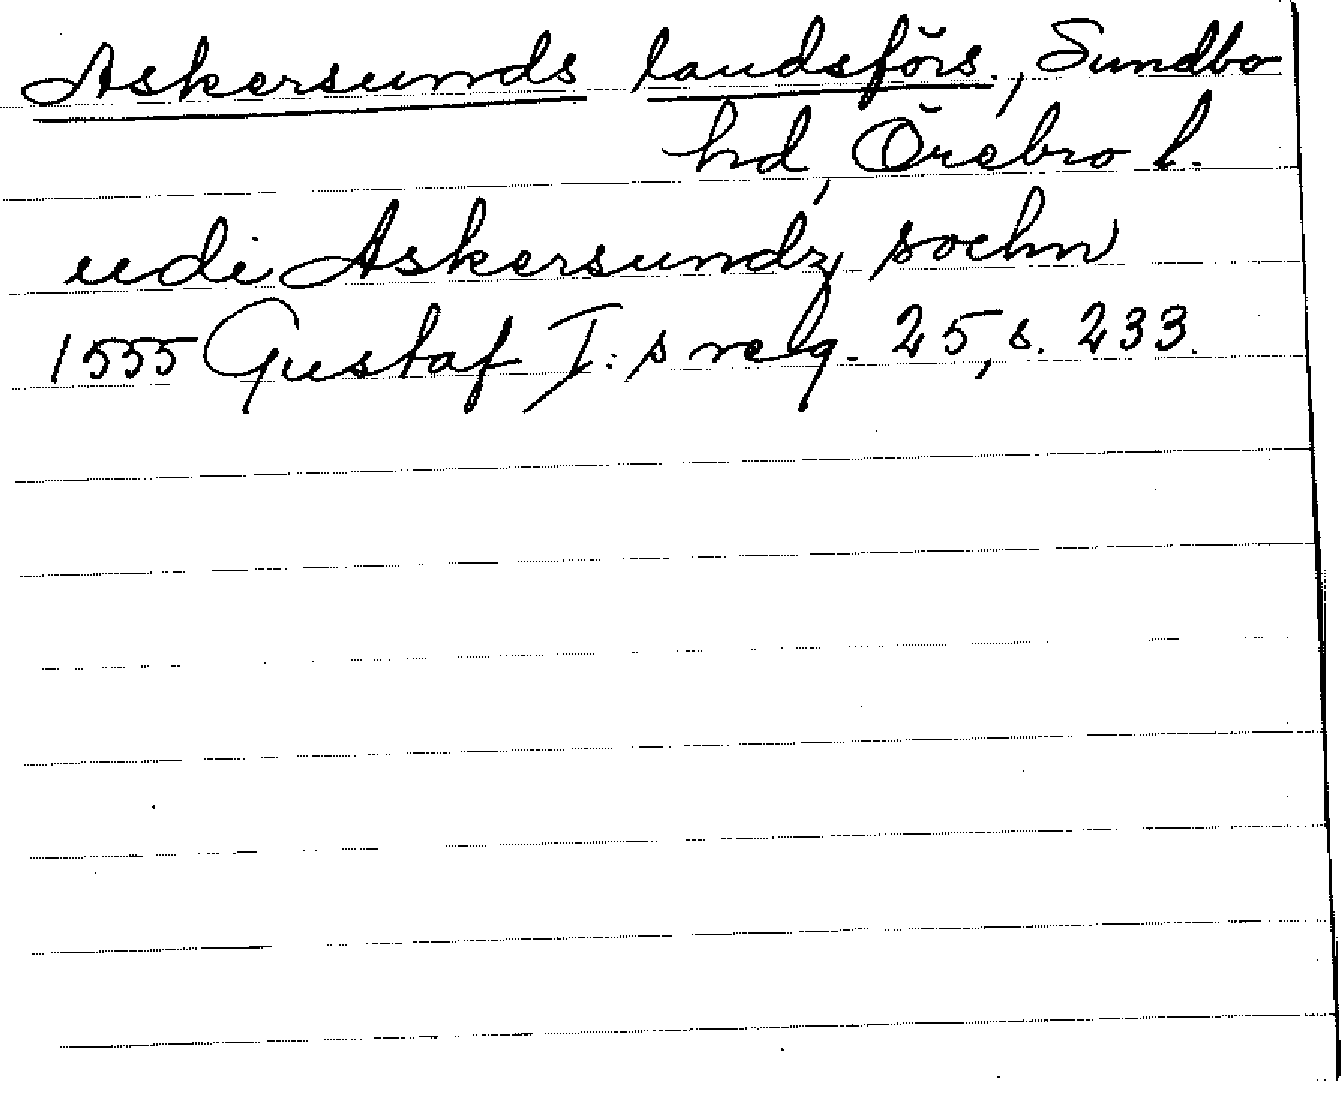 Askersunds landsförs., Sundbo
hd, Örebro l.
udi Askersundz sochn
1555 Gustaf I:s reg. 25, s. 233.